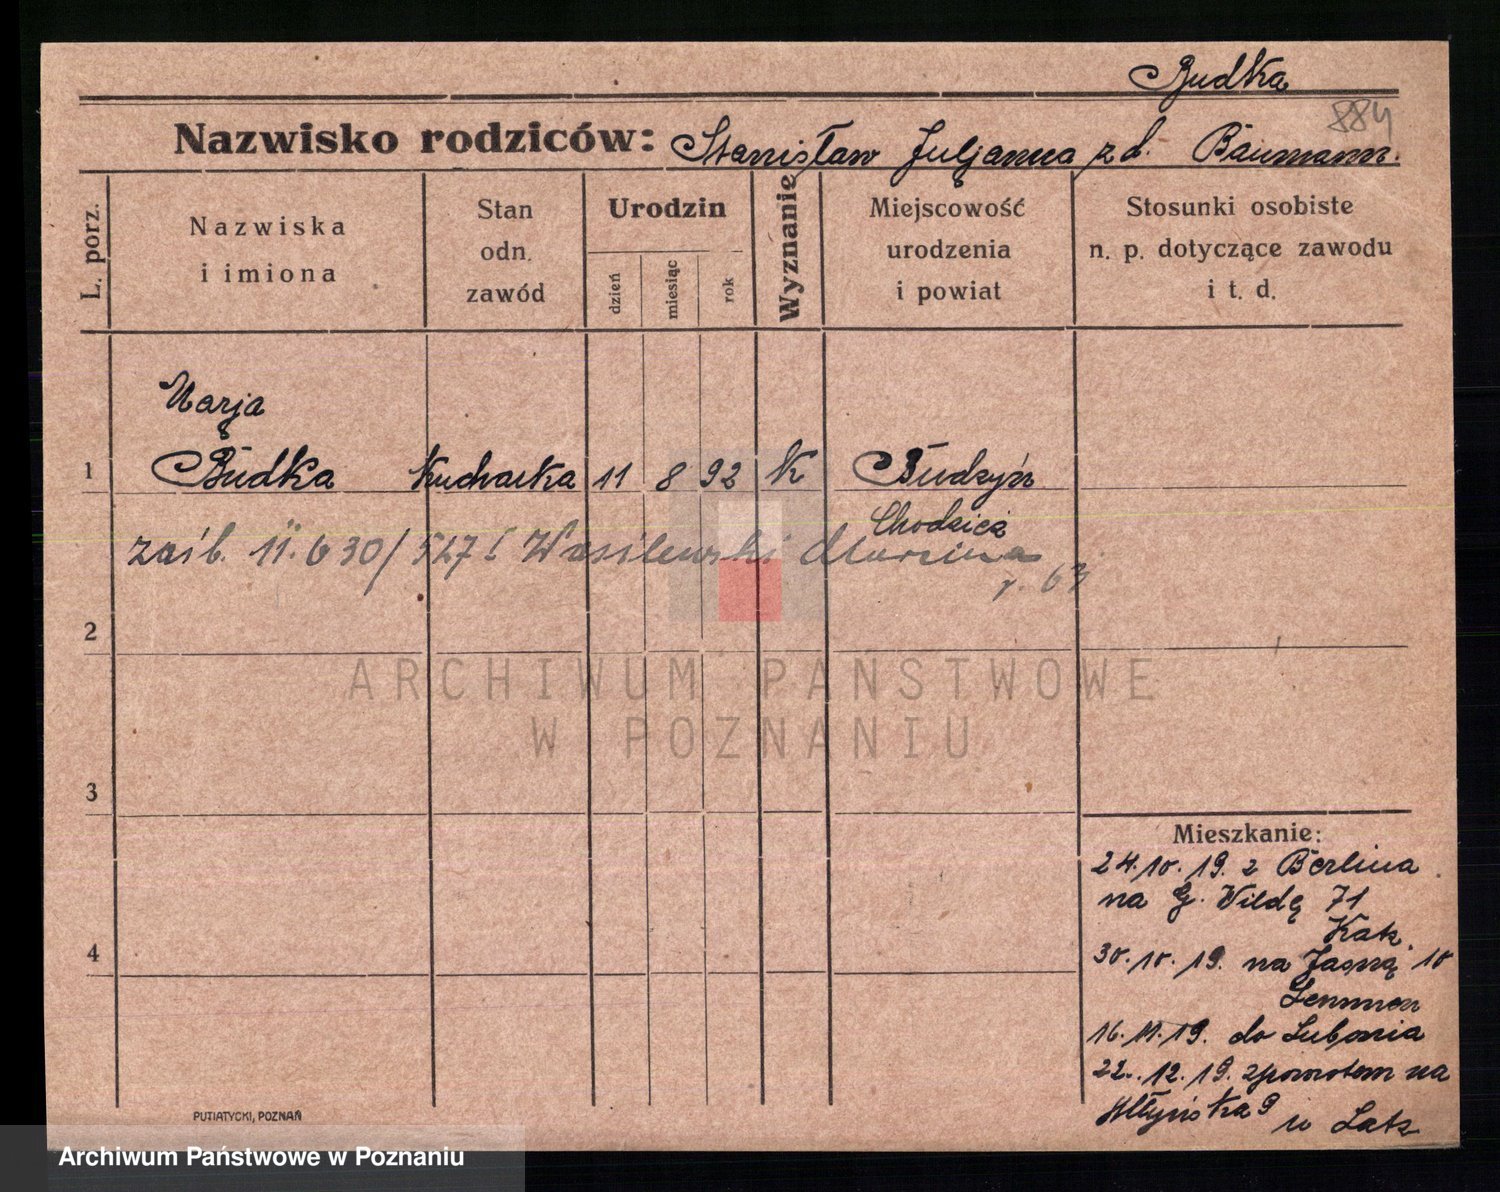 Budka
884
Nazwisko rodziców: Stanisław Juljanna z d. Baumann.
L. porz.
Nazwiska
i imiona
Stan
odn.
zawód
Urodzin
dzień
miesiąc
rok
Wyznanie
Miejscowość
urodzenia
i powiat
Stosunki osobiste
n. p. dotyczące zawodu
i t. d.
Marja
1 Budka Kucharka 11 8 92 K Budzyń
Chodzież
zaśb. 11. 6 30/ 527 I Wasilewski Marcina
r. 63
2
ARCHIWUM PAŃSTWOWE
W POZNANIU
3
Mieszkanie:
24.10.19. z Berlina
na G. Wildę 71
Katz.
4
30.10.19. na Jasną 10
16.11.19. do Lubonia
22.12.19. zpowrotem na
Młyńska 9 u Latz
PUTIATYCKI, POZNAŃ
Archiwum Państwowe w Poznaniu